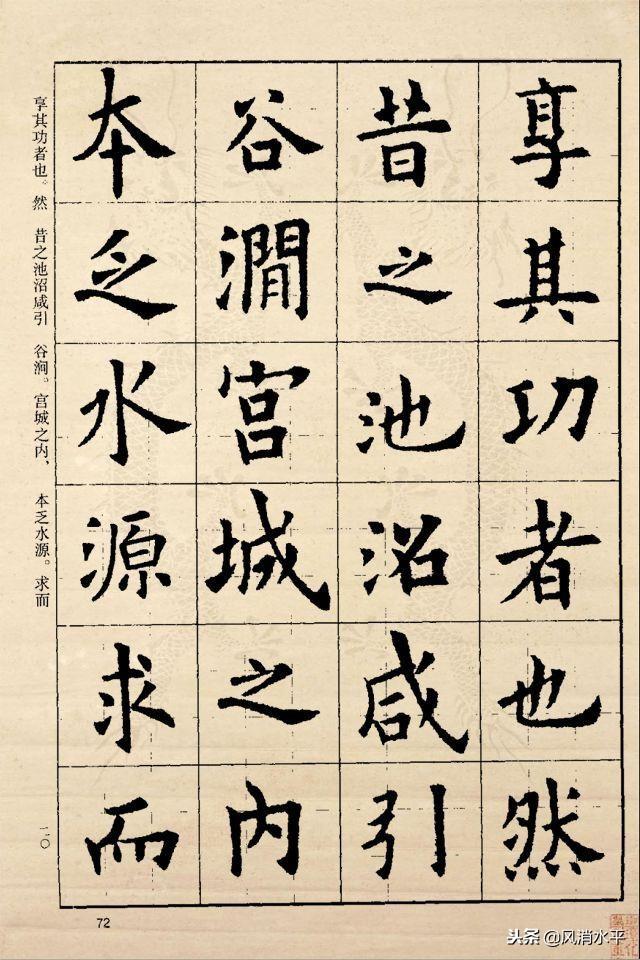 享其功者也然
昔之池沼咸引
谷澗宮城之内
本乏水源求而
享其功者也。然　昔之池沼咸引　谷涧。宫城之内，　本乏水源。求而
一〇
72
头条@风消水平